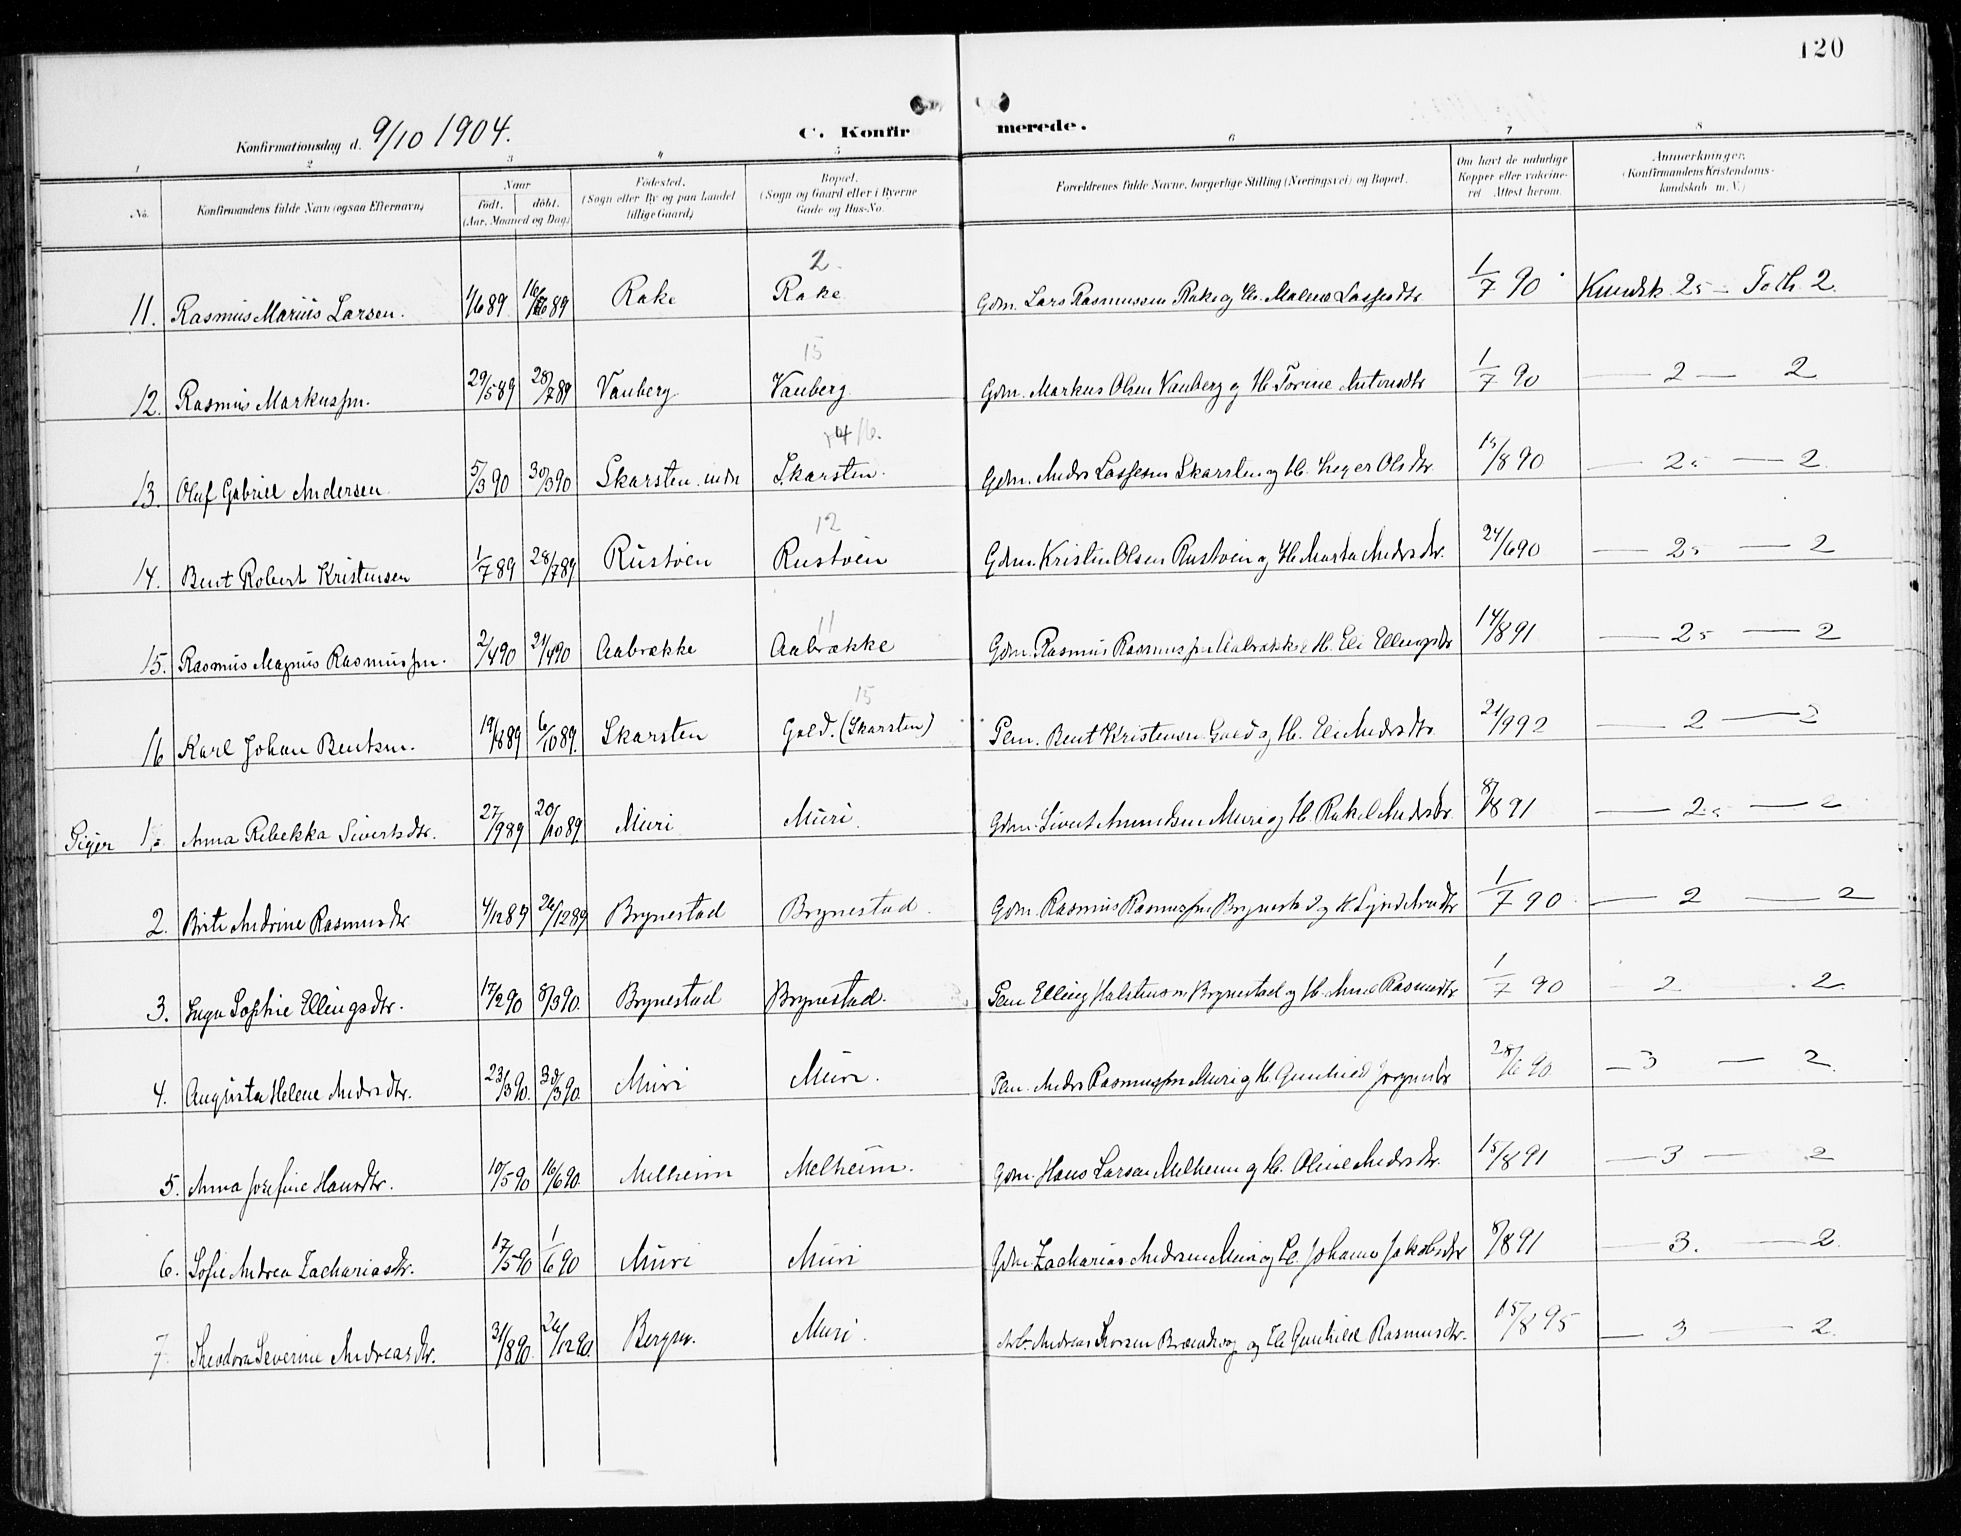 120
Konfirmationsdag d. 9/10 1904. C. Konfirmerede.
1 2 3 4 5 6 7 8
No. Konfirmandens fulde Navn (ogsaa Efternavn) Naar født. døbt. (Aar, Maaned og Dag) Fødested. (Sogn eller By og paa Landet tillige Gaard) Bopæl. (Sogn og Gaard eller i Byerne Gade og Hus-No. Forældrenes fulde Navne, borgerlige Stilling (Næringsvei) og Bopæl. Om havt de naturlige Kopper eller vakcineret Attest herom. Anmerkninger. (Konfirmandens Kristendomskundskab m. V.)
2.
11. Rasmus Marius Larsen. 1/6 89 16/6 89 Rake Rake Gdm. Lars Rasmussen Rake og H. Malene Lassesdtr 1/7 90 Kundsk. 2 5 - Forh. 2.
15
12. Rasmus Markussen. 29/5 89 28/7 89 Vauberg Vauberg Gdm. Markus Olsen Vauberg og H. Torine Antonsdtr 1/7 90 — 2 — 2
14/6.
13. Oluf Gabriel Andersen 5/3 90 30/3 90 Skarsten indre Skarsten. Gdm. Anders Lassesen Skarsten og H. Olsdtr. 15/8 90 — 2 5 — 2
12
14. Bent Robert Kristensen 1/7 89 28/7 89 Rustøen Rustøen Gdm. Kristen Olsen Rustøen og H. Marta Andersdtr. 24/6 90 — 2 5 — 2
11
15. Rasmus Magnus Rasmussen. 2/4 90 21/4 90 Aabrække Aabrække Gdm. Rasmus Rasmussen Aabrække H. Eli Ellingsdtr 14/8 91 — 2 5 — 2
15
16 Karl Johan Bentsen. 19/8 89 6/10 89. Skarsten Gold. (Skarsten) Pm. Bent Kristensen Gold og H. Eli Andersdtr 21/9 92 — 2 — 2
Piger 1. Anna Rebekka Sivertsdtr. 27/9 89 20/10 89. Muri Muri Gdm. Sivert Amundsen Muri og H. Rakel Andersdtr. 8/8 91 — 2 5 — 2
2. Birte Andrine Rasmusdtr 4/12 89 26/12 89 Brynestad Brynestad. Gdm. Rasmus Rasmussen Brynestad og H. 1/7 90 — 2 — 2
3. Inga Sophie Ellingsdtr. 17/2 90 8/3 90. Brynestad Brynestad. Pm. Elling Halstensen Brynestad og H. Anne Rasmusdtr 1/7 90 - 2 . 2
4. Augusta Helene Andersdtr. 23/3 90. 30/3 90. Muri Muri. Pm. Anders Rasmussen Muri og H. Gunhild Jørgensdtr 28/6 90 — 3 — 2
5. Anna Josefine Hansdtr. 10/5 90 16/6 90. Melheim Melheim. Gdm. Hans Larsen Melheim og H. Oline Andersdtr. 15/8 91 — 3 — 2
6. Sofie Andrea Zachariasdtr. 17/5 90 1/6 90 Muri Muri Gdm. Zacharias Andersen Muri og H. Johanne Jakobsdtr 8/8 91 — 3. — 2
7. Theodora Severine Andreasdtr. 31/8 90. 26/12 90. Bergen. Muri. Arb. Andreas Brændhog og H. Gunhild Rasmusdtr. 15/8 95 — 3 — 2